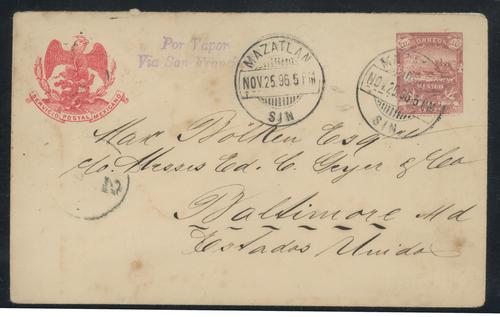 Por Vapor
Via San Franci
SERVICIO POSTAL MEXICANO
MAZATLAN
NOV.25.96.5 P.M
SIN
CORREOS
10
MEXICO
MAZ
NOV.25.96.5 P.M
SIN
Max Bolken Esq
c/o Messrs Ed. C. Geyer & Co
Baltimore Md
Estados Unidos
2